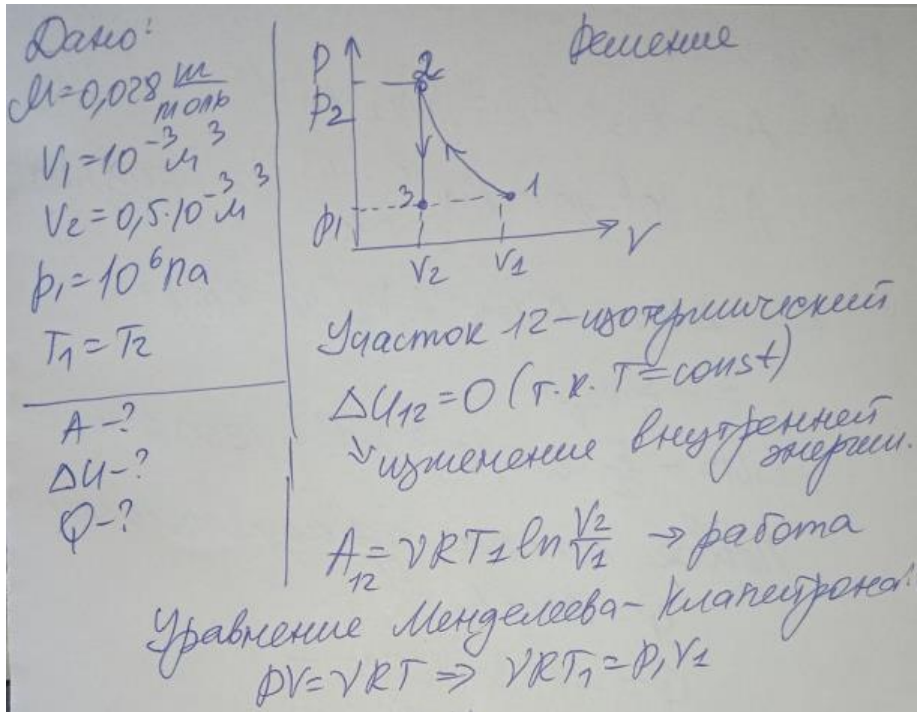 Дано:
M=0,028 кг/моль
V₁=10⁻³ м³
V₂=0,5·10⁻³ м³
p₁=10⁶ Па
T₁=T₂
A-?
ΔU-?
Q-?
Решение
P
P₂
2
3
1
P₁
V₂
V₁
V
Участок 12-изотермический
ΔU₁₂=0 (т.к. T=const)
↘ изменение внутренней
энергии.
A₁₂=νRT₁ ln V₂/V₁ → работа
Уравнение Менделеева-Клапейрона:
PV=νRT ⇒ νRT₁=P₁V₁